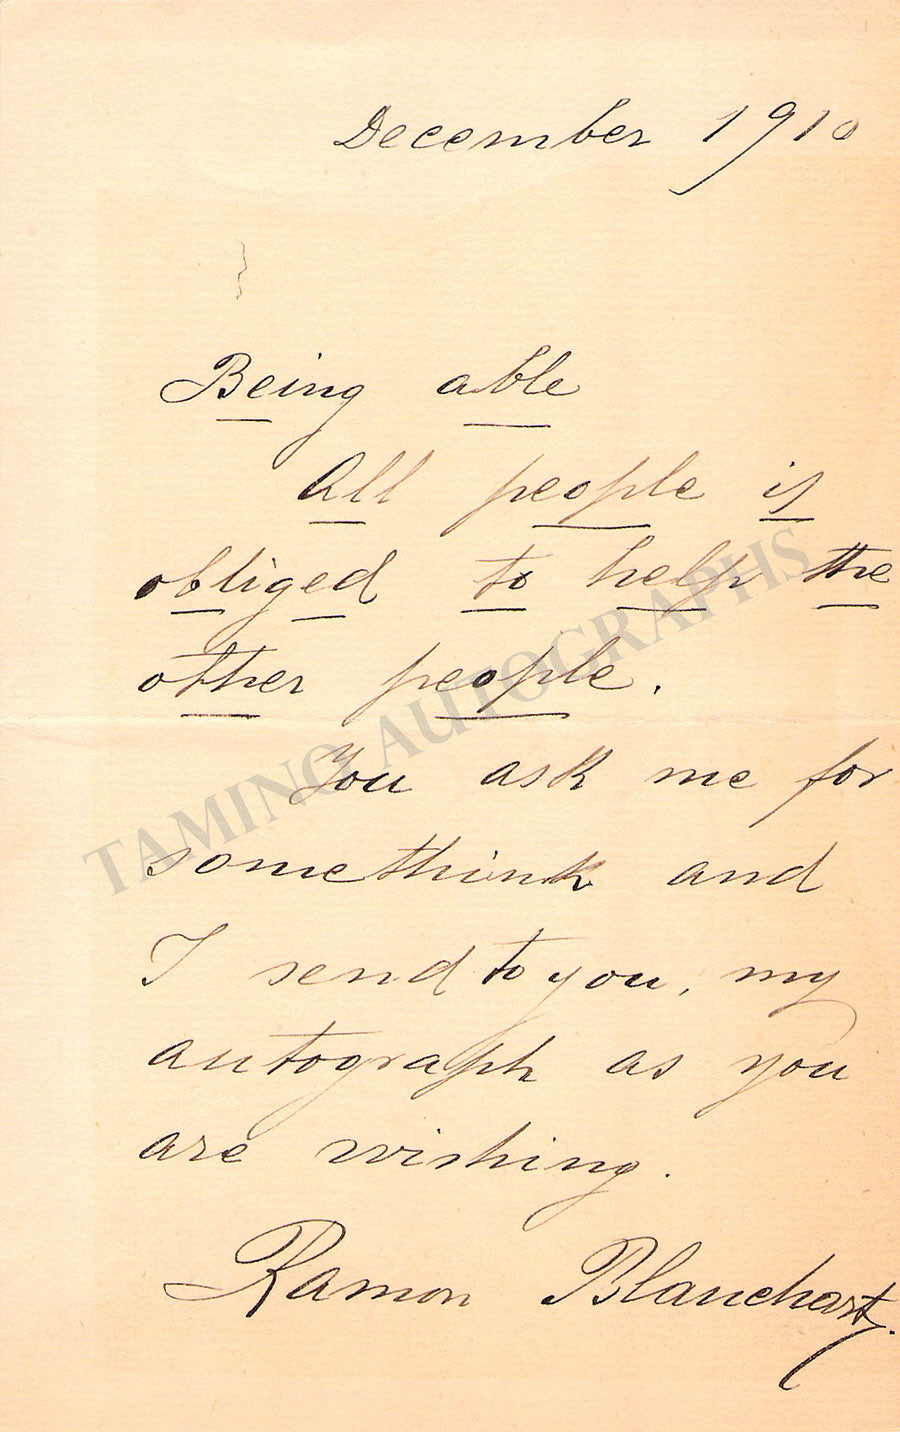 December 1910
Being able
All people is
obliged to help the
other people.
You ask me for
somethink and
I send to you, my
autograph as you
are wishing.
Ramon Blanchart.
TAMINO AUTOGRAPHS